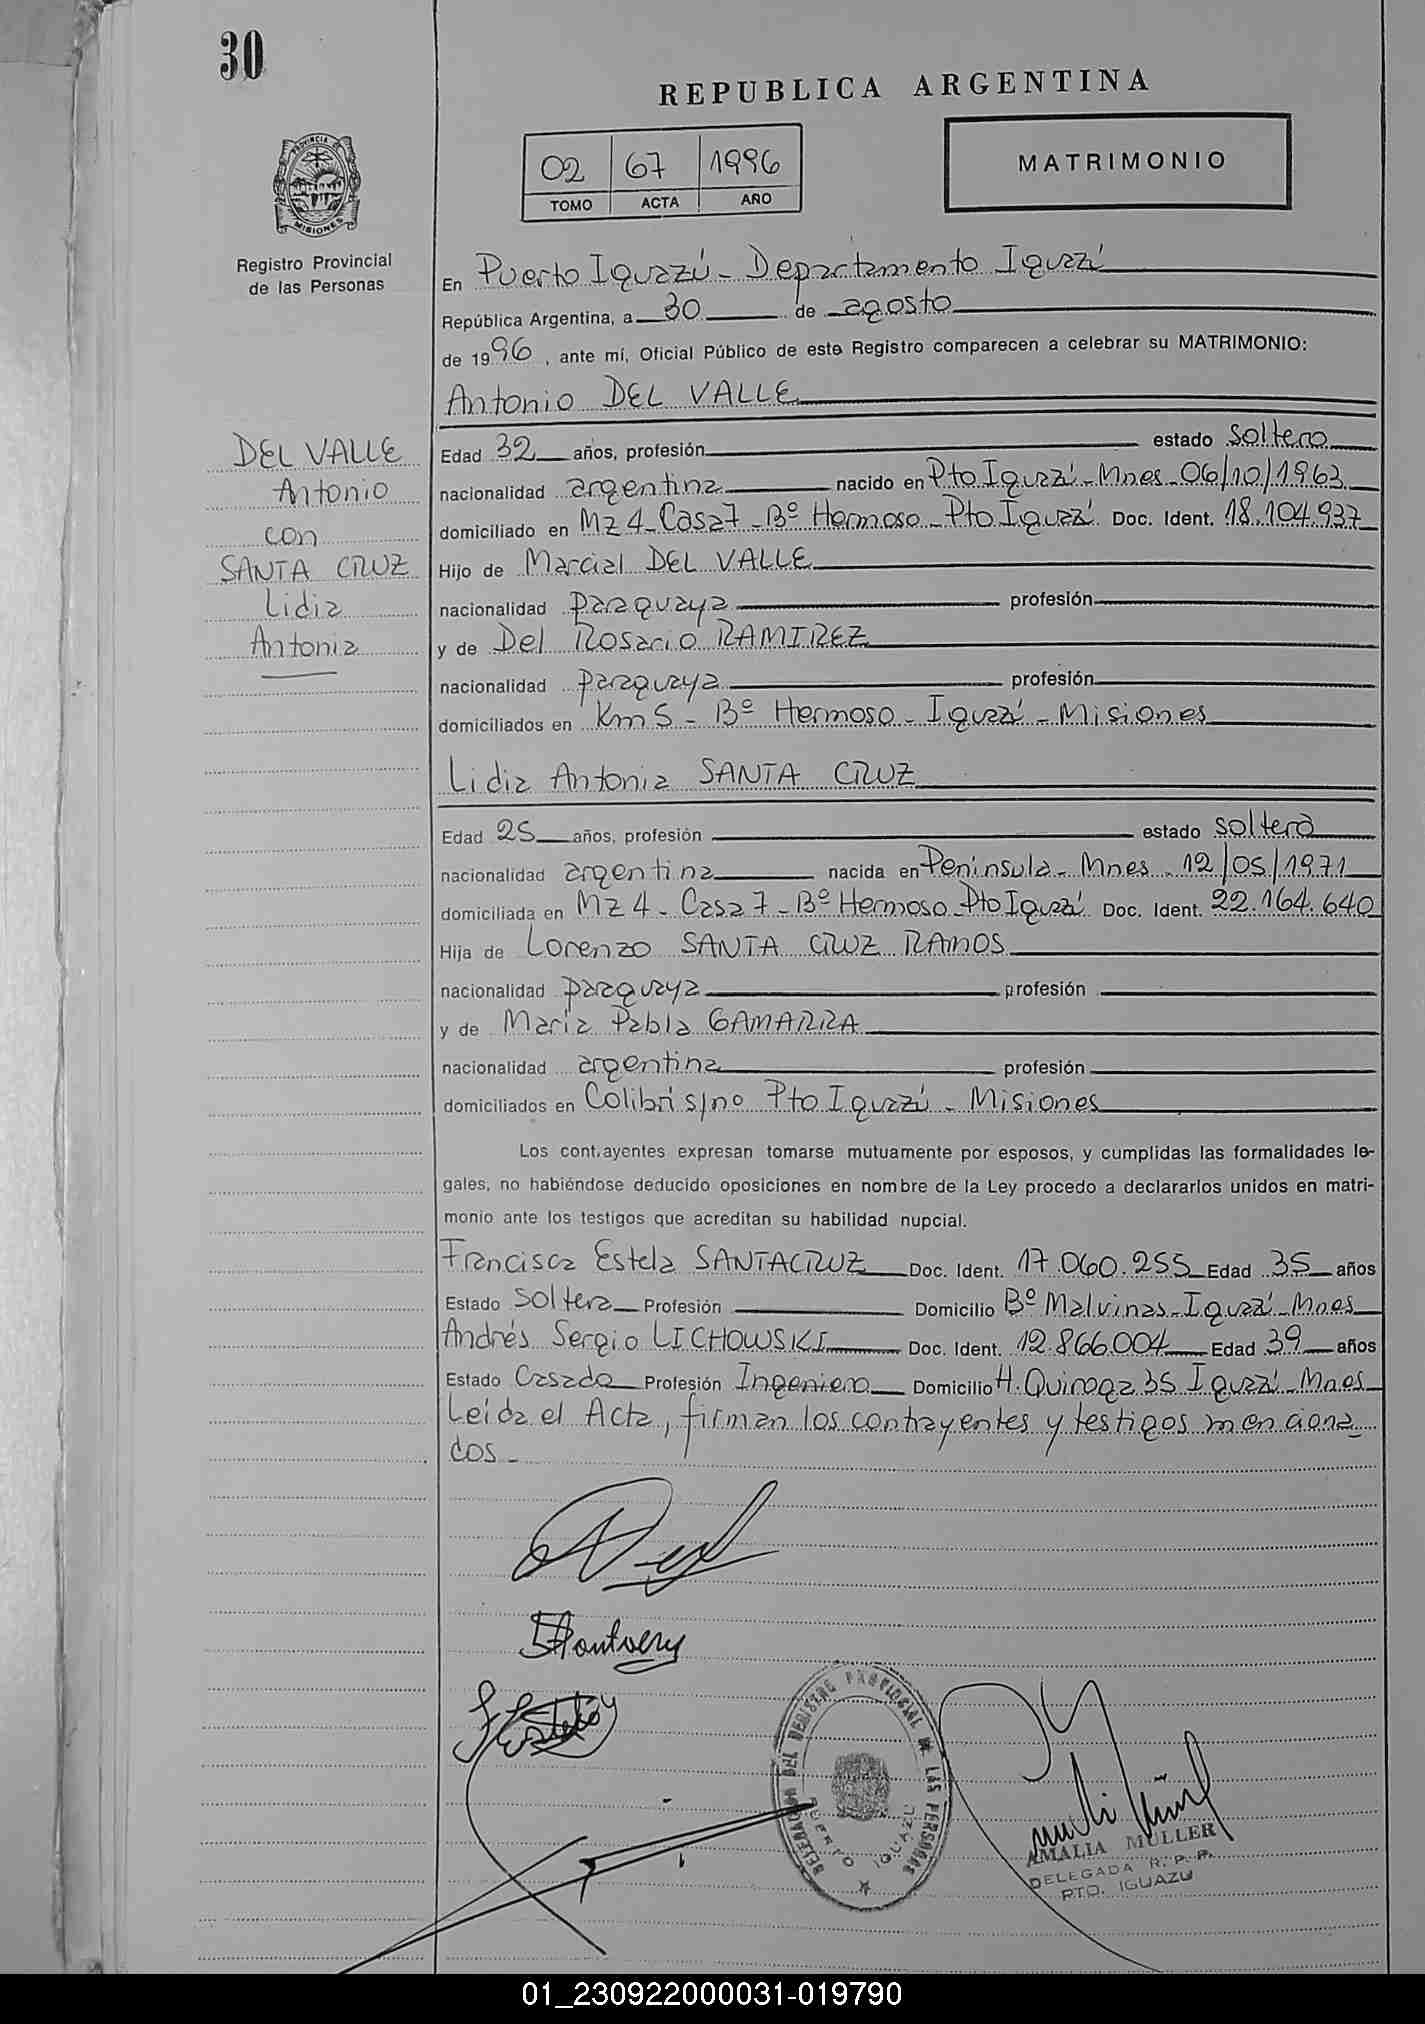 30
REPUBLICA ARGENTINA
PROVINCIA DE
MISIONES
02 67 1996
TOMO ACTA AÑO
MATRIMONIO
Registro Provincial
de las Personas
En Puerto Iguazú - Departamento Iguazú
República Argentina, a 30 de agosto
de 1996, ante mí, Oficial Público de este Registro comparecen a celebrar su MATRIMONIO:
Antonio DEL VALLE
DEL VALLE
Antonio
con
SANTA CRUZ
Lidia
Antonia
Edad 32 años, profesión estado soltero
nacionalidad argentina nacido en Pto Iguazú - Mnes - 06/10/1963
domiciliado en Mz 4 - Casa 7 - Bº Hermoso - Pto Iguazú Doc. Ident. 18.104.937
Hijo de Marcial DEL VALLE
nacionalidad paraguaya profesión
y de Del Rosario RAMIREZ
nacionalidad paraguaya profesión
domiciliados en Km 5 - Bº Hermoso - Iguazú - Misiones
Lidia Antonia SANTA CRUZ
Edad 25 años, profesión estado soltera
nacionalidad argentina nacida en Peninsula - Mnes - 12/05/1971
domiciliada en Mz 4 - Casa 7 - Bº Hermoso - Pto Iguazú Doc. Ident. 22.164.640
Hija de Lorenzo SANTA CRUZ RAMOS
nacionalidad paraguaya profesión
y de Maria Pabla GAMARRA
nacionalidad argentina profesión
domiciliados en Colibrí s/nº Pto Iguazú - Misiones
Los contrayentes expresan tomarse mutuamente por esposos, y cumplidas las formalidades le-
gales, no habiéndose deducido oposiciones en nombre de la Ley procedo a declararlos unidos en matri-
monio ante los testigos que acreditan su habilidad nupcial.
Francisca Estela SANTACRUZ Doc. Ident. 17.060.255 Edad 35 años
Estado Soltera Profesión Domicilio Bº Malvinas - Iguazú - Mnes
Andrés Sergio LICHOWSKI Doc. Ident. 12.866.004 Edad 39 años
Estado Casado Profesión Ingeniero Domicilio H. Quiroga 35 Iguazú - Mnes
Leída el Acta, firman los contrayentes y testigos menciona-
dos -
DELEGACION DEL REGISTRO PROVINCIAL DE LAS PERSONAS
PUERTO IGUAZU
AMALIA MULLER
DELEGADA R. P. P.
PTO. IGUAZU
01_230922000031-019790